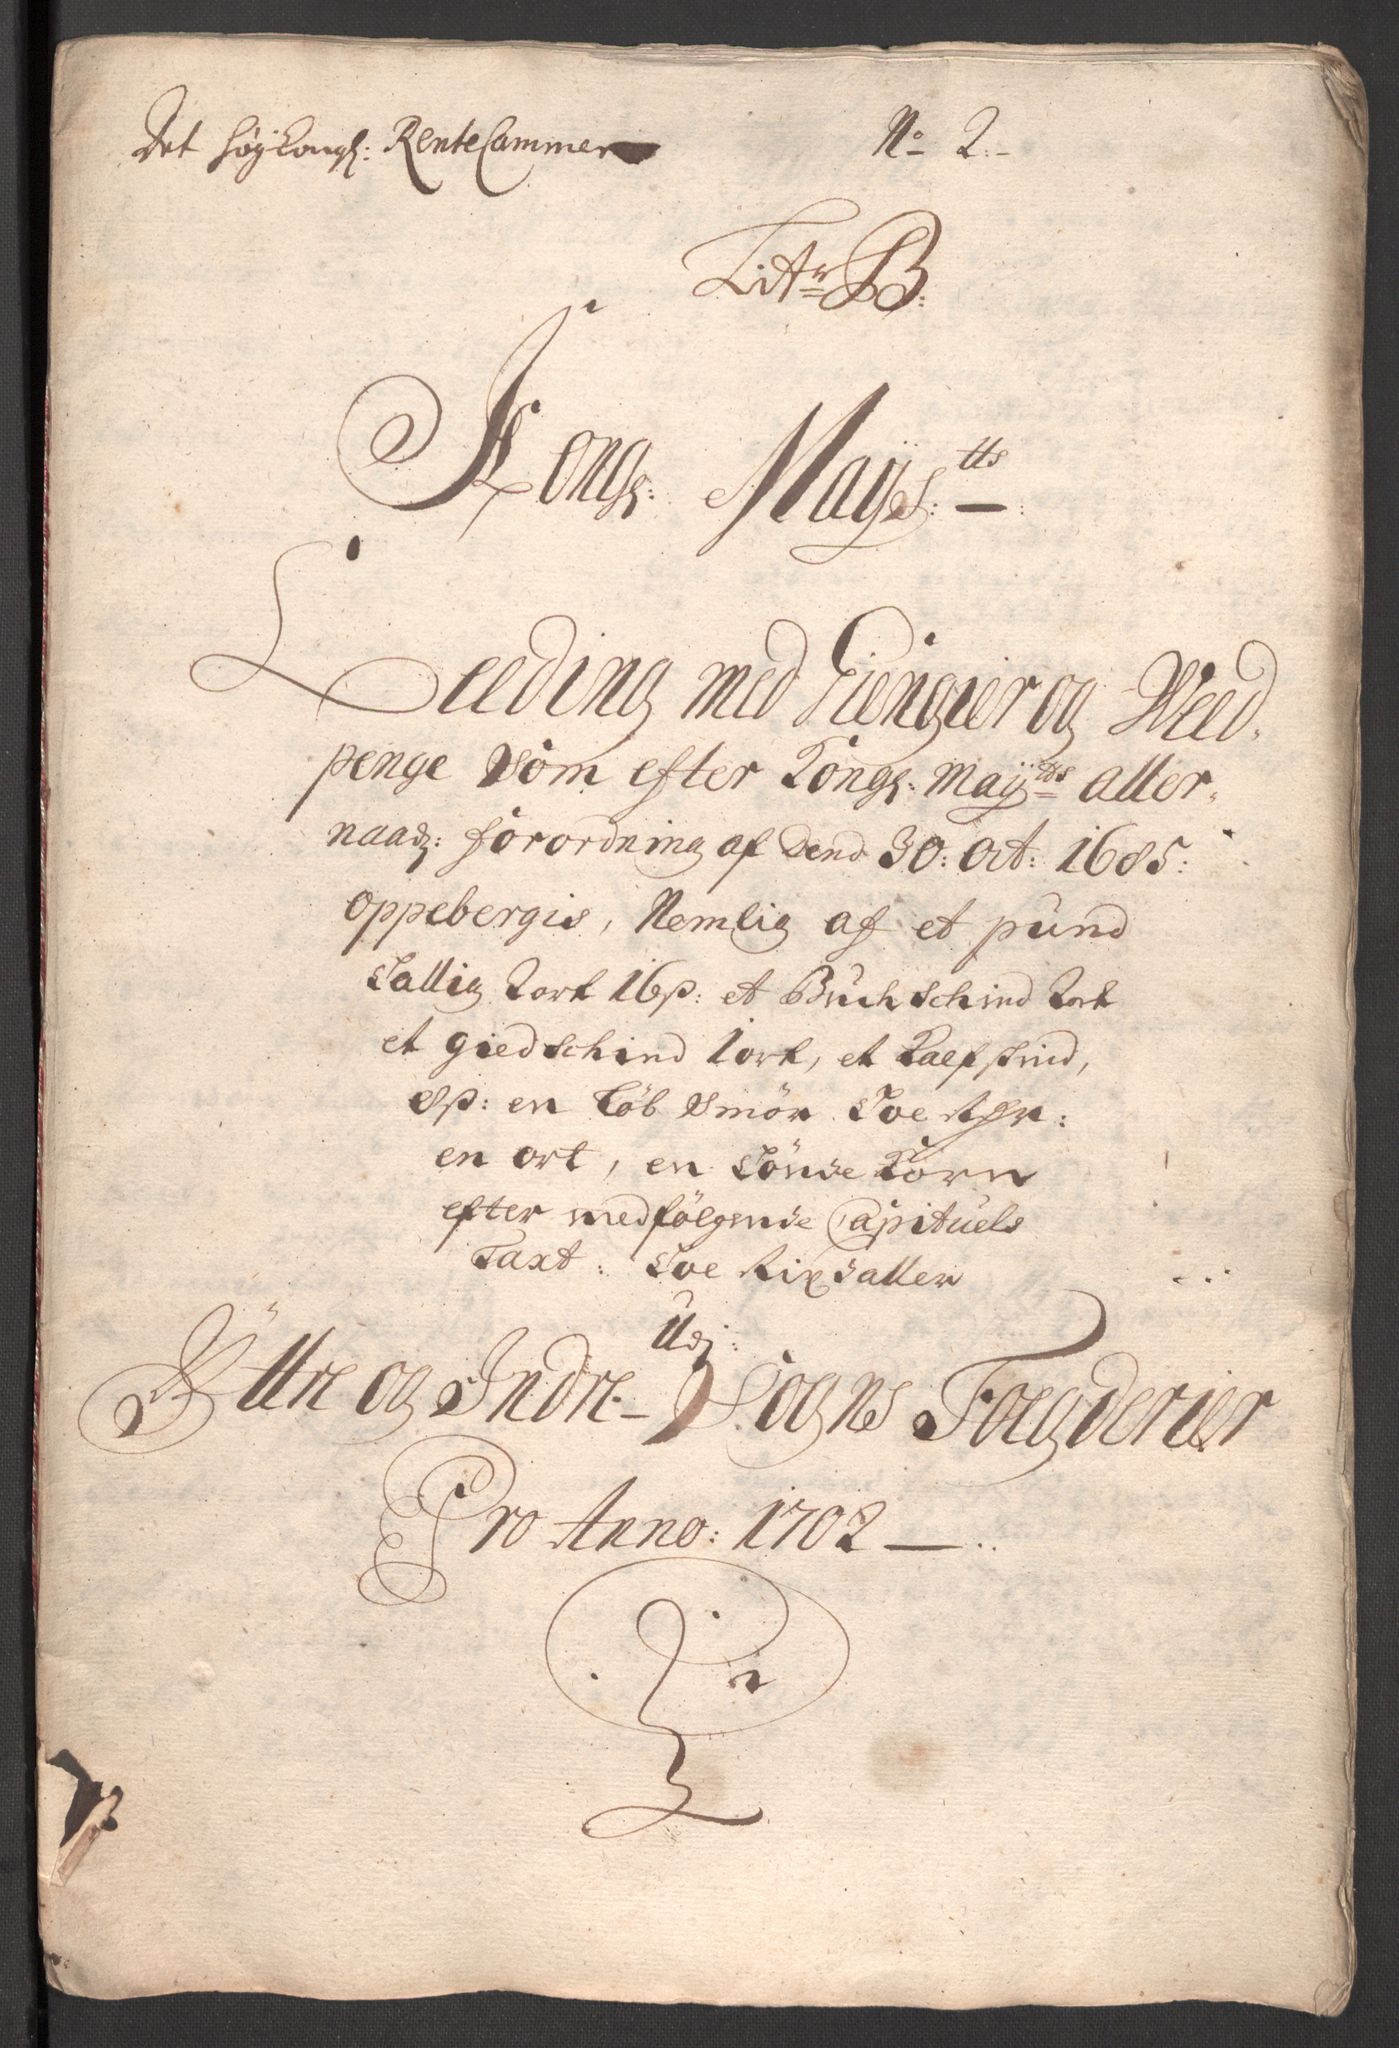 Det höÿkongl: RenteCammer
No 2.
Litr B:
Kongl: Maÿs:tts
Leeding med Giengier og Weed-
penge som efter Kongl: Maÿtts aller-
naad: forordning af dend 30: Oct: 1685:
oppebergis, Nemlig af et pund
Tallig 2 ort 16 β: et Buchschind 2 ort
et giedschind 1 ort, et Kalfskind,
8 β: en Løb Smör Toe Rdr:
en ort, en Tönde Korn
efter medfölgende Capituels
Taxt: Toe Rixdaller
Udj:
Ÿttre og Indre Sogns Foegderier
Pro Anno: 1702